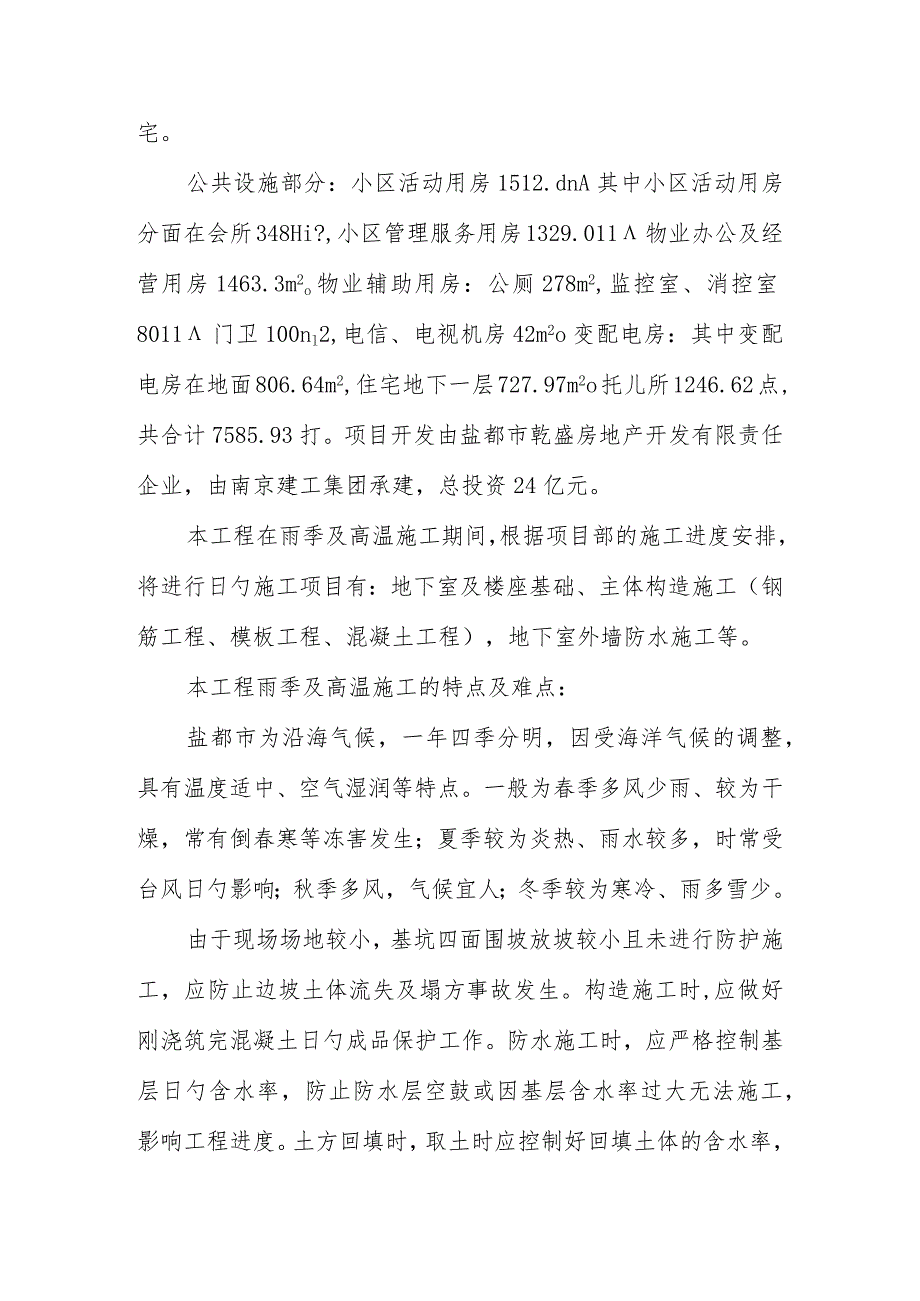 宅。
公共设施部分：小区活动用房1512.dnA其中小区活动用房
分面在会所348Hi?,小区管理服务用房1329.011Λ物业办公及经
营用房1463.3m²。物业辅助用房：公厕278m²,监控室、消控室
8011Λ门卫100n₁2,电信、电视机房42m²o变配电房：其中变配
电房在地面806.64m²,住宅地下一层727.97m²o托儿所1246.62点,
共合计7585.93打。项目开发由盐都市乾盛房地产开发有限责任
企业，由南京建工集团承建，总投资24亿元。
本工程在雨季及高温施工期间,根据项目部的施工进度安排，
将进行日勺施工项目有：地下室及楼座基础、主体构造施工（钢
筋工程、模板工程、混凝土工程），地下室外墙防水施工等。
本工程雨季及高温施工的特点及难点：
盐都市为沿海气候，一年四季分明，因受海洋气候的调整，
具有温度适中、空气湿润等特点。一般为春季多风少雨、较为干
燥，常有倒春寒等冻害发生；夏季较为炎热、雨水较多，时常受
台风日勺影响；秋季多风，气候宜人；冬季较为寒冷、雨多雪少。
由于现场场地较小，基坑四面围坡放坡较小且未进行防护施
工，应防止边坡土体流失及塌方事故发生。构造施工时,应做好
刚浇筑完混凝土日勺成品保护工作。防水施工时，应严格控制基
层日勺含水率，防止防水层空鼓或因基层含水率过大无法施工，
影响工程进度。土方回填时，取土时应控制好回填土体的含水率，